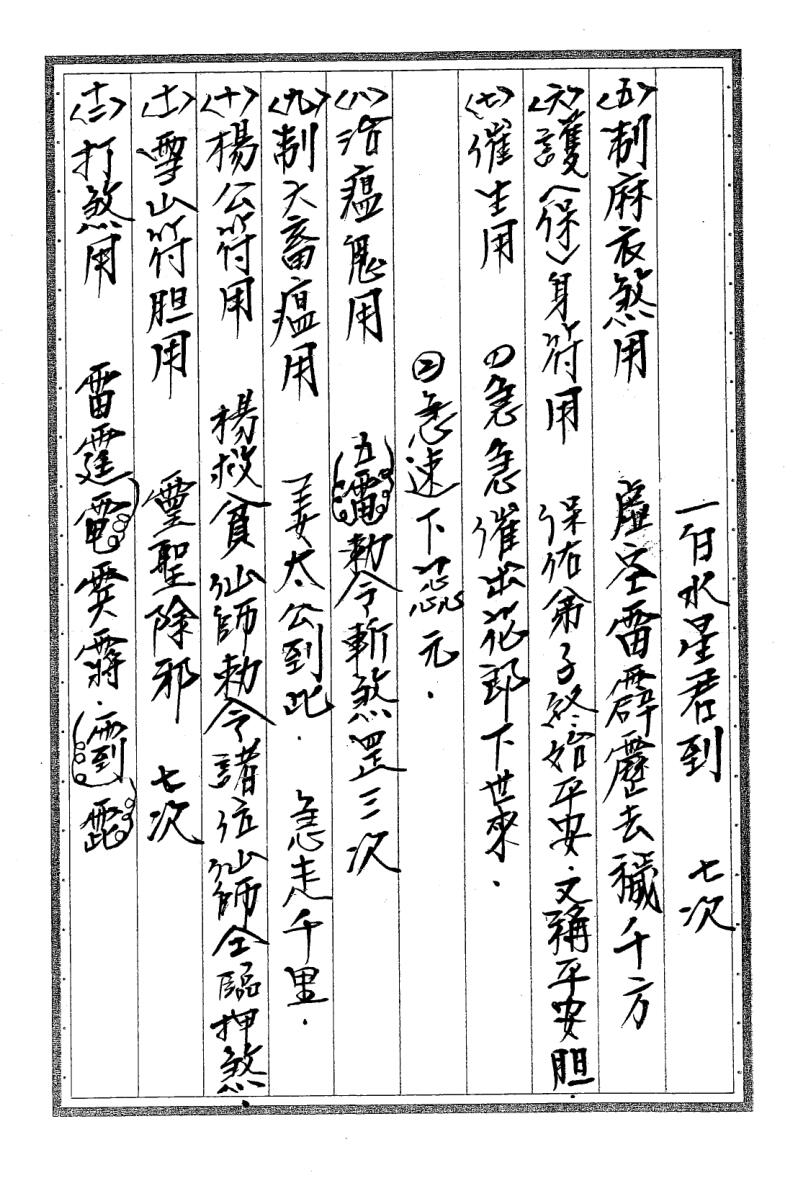 一白水星君到 七次
〈五〉制麻衣煞用 虛空雷霹靂去穢千方
〈六〉護〈保〉身符用 保佑弟子終始平安．又稱平安胆
〈七〉催生用 ①急急催出花郎下世來．
②急速下 元．
〈八〉治瘟鬼用 五雷勅令斬煞罡三次
〈九〉制大畜瘟用 姜太公到此．急走千里．
〈十〉楊公符用 楊救貧仙師勅令諸位仙師仝臨押煞．
〈十一〉雪山符胆用 靈聖除邪 七次
〈十二〉打煞用 雷霆電